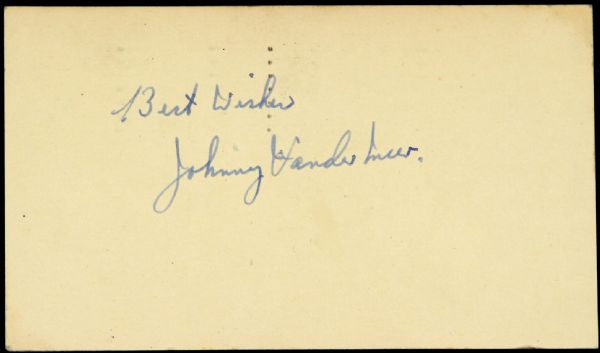 Best Wishes
Johnny Vander Meer.